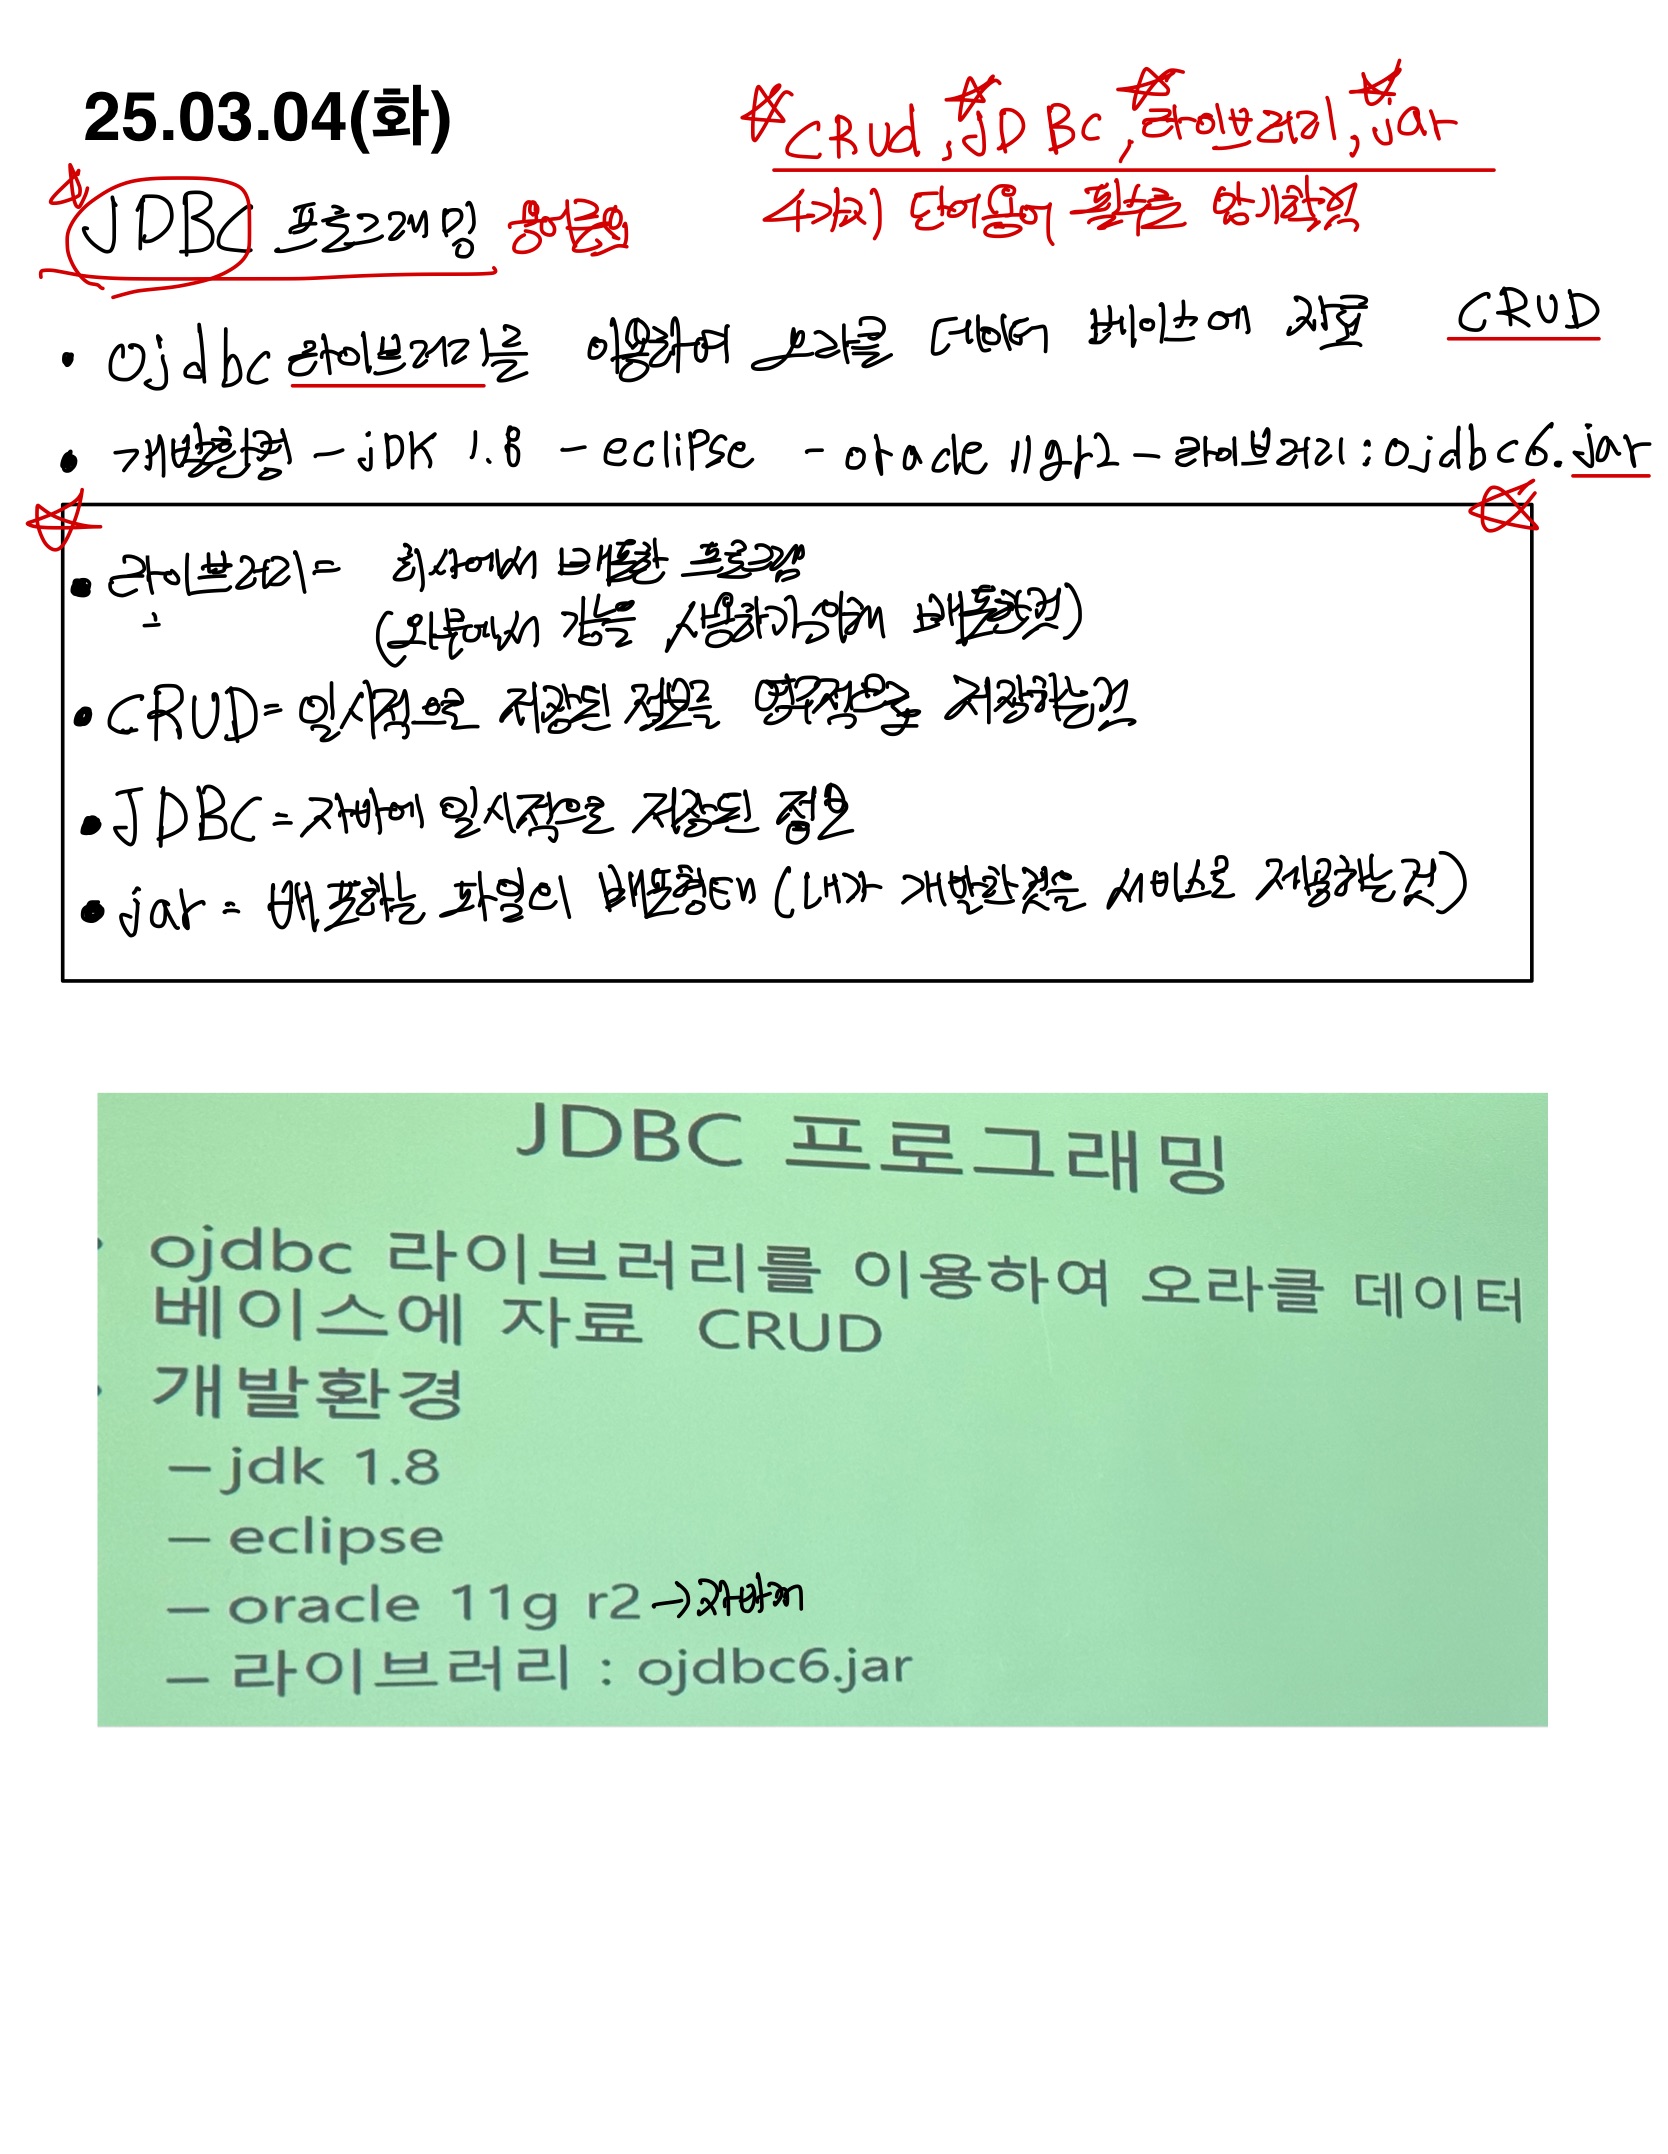 25.03.04(화)
CRud, JDBC, 라이브러리, jar
4가지 단어용어 필수로 암기할것
JDBC 프로그래밍
• ojdbc 라이브러리를 이용하여 오라클 데이터 베이스에 자료 CRUD
• 개발환경 - jDK 1.8 - eclipse - oracle 11g r2 - 라이브러리 : ojdbc6.jar
• 라이브러리 = 회사에서 배포한 프로그램
(외부에서 기능을 사용하기위해 배포한것)
• CRUD = 일시적으로 저장된 정보를 영구적으로 저장하는것
• JDBC = 자바에 일시적으로 저장된 정보
• jar = 배포하는 파일의 배포형태 (내가 개발한것을 서비스로 제공하는것)
JDBC 프로그래밍
ojdbc 라이브러리를 이용하여 오라클 데이터
베이스에 자료 CRUD
개발환경
– jdk 1.8
– eclipse
– oracle 11g r2 →
– 라이브러리 : ojdbc6.jar